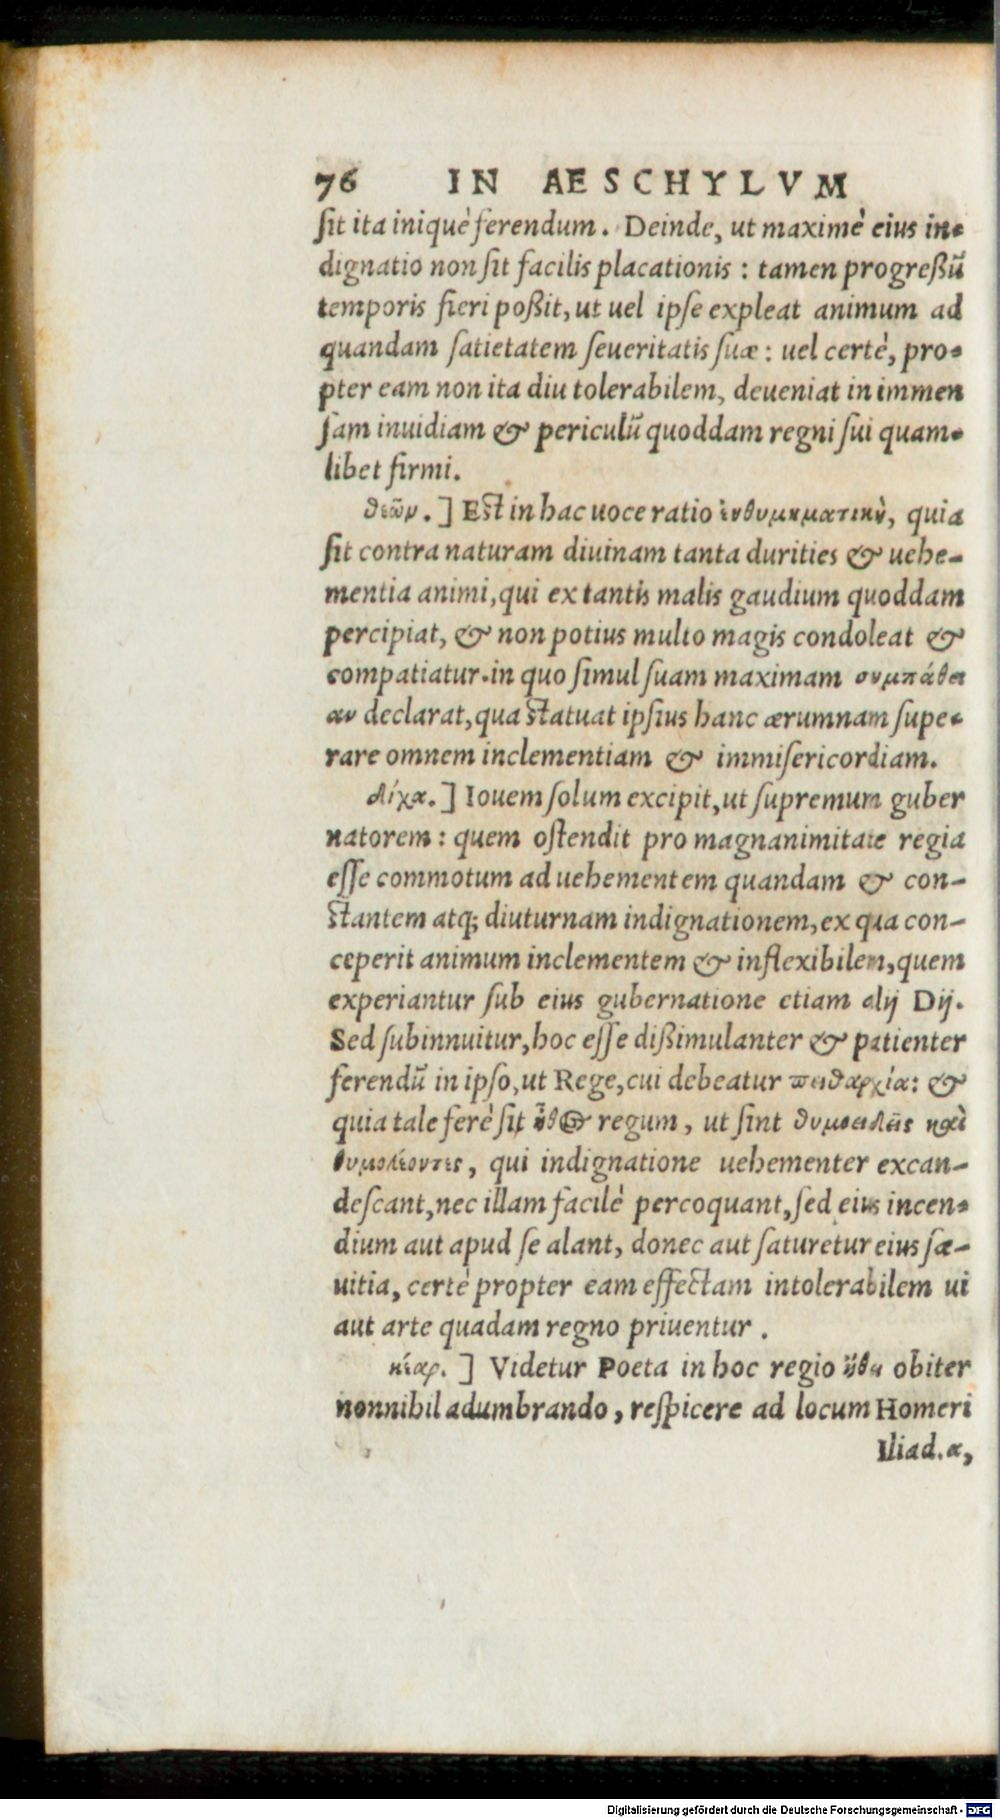 76 IN AESCHYLVM
sit ita iniquè ferendum. Deinde, ut maximè eius in-
dignatio non sit facilis placationis: tamen progreßũ
temporis fieri poßit, ut uel ipse expleat animum ad
quandam satietatem seueritatis suæ: uel certè, pro-
pter eam non ita diu tolerabilem, deueniat in immen
sam inuidiam & periculũ quoddam regni sui quam-
libet firmi.
θεῶν.] Est in hac uoce ratio ἐνθυμηματικὴ, quia
sit contra naturam diuinam tanta durities & uehe-
mentia animi, qui ex tantis malis gaudium quoddam
percipiat, & non potius multo magis condoleat &
compatiatur. in quo simul suam maximam συμπάθει
αν declarat, qua statuat ipsius hanc ærumnam supe-
rare omnem inclementiam & immisericordiam.
Δίχα.] Iouem solum excipit, ut supremum guber
natorem: quem ostendit pro magnanimitate regia
esse commotum ad uehementem quandam & con-
stantem atq; diuturnam indignationem, ex qua con-
ceperit animum inclementem & inflexibilem, quem
experiantur sub eius gubernatione etiam alij Dij.
Sed subinnuitur, hoc esse dißimulanter & patienter
ferendũ in ipso, ut Rege, cui debeatur πειθαρχία: &
quia tale ferè sit ἦθος regum, ut sint θυμοειδεῖς καὶ
θυμολέοντες, qui indignatione uehementer excan-
descant, nec illam facilè percoquant, sed eius incen-
dium aut apud se alant, donec aut saturetur eius sæ-
uitia, certè propter eam effectam intolerabilem ui
aut arte quadam regno priuentur.
κέαρ.] Videtur Poeta in hoc regio ἤθη obiter
nonnihil adumbrando, respicere ad locum Homeri
Iliad. α,
Digitalisierung gefördert durch die Deutsche Forschungsgemeinschaft - DFG